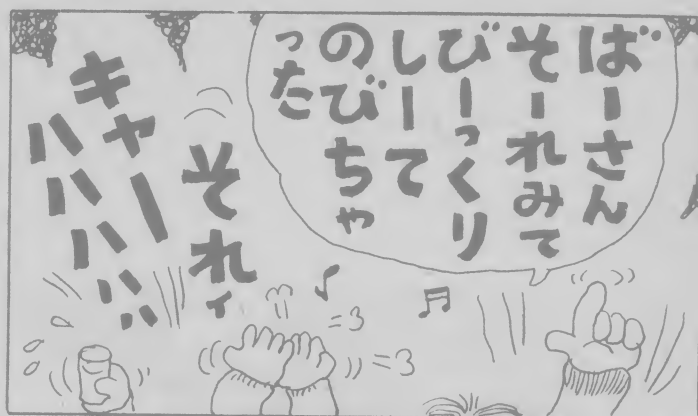 ばーさん
そーれみて
びーっくり
しーて
のびちゃ
った
それィ
キャー
ハハハハ